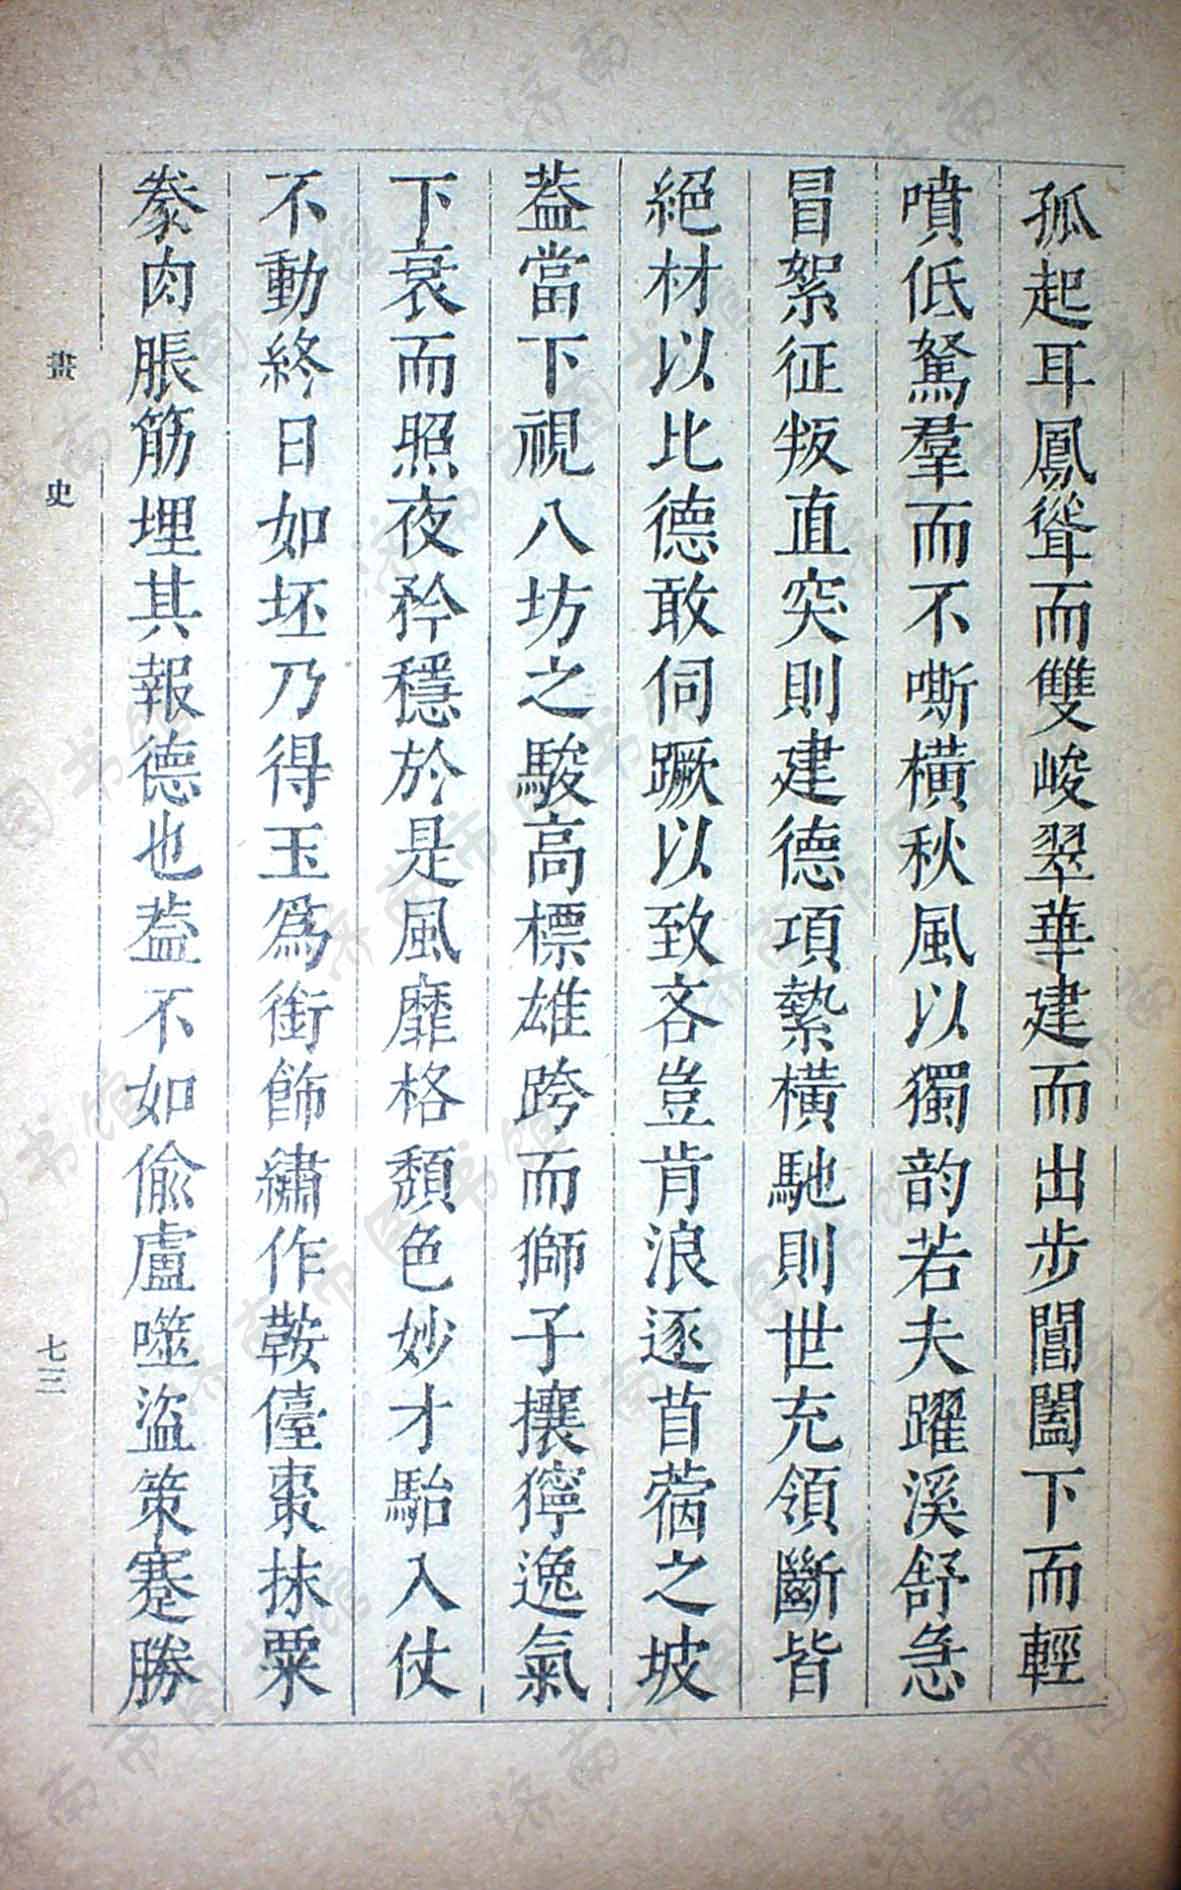 孤起耳鳳聳而雙峻翠華建而出步閶闔下而輕
噴低駑羣而不嘶橫秋風以獨韵若夫躍溪舒急
冒絮征叛直突則建德項縶橫馳則世充領斷皆
絕材以比德敢伺蹶以致吝豈肯浪逐苜蓿之坡
葢當下視八坊之駿高標雄跨而獅子攘獰逸氣
下衰而照夜矜穩於是風靡格頹色妙才駘入仗
不動終日如坯乃得玉爲銜飾繡作鞍儓棗抹粟
豢肉脹筋埋其報德也葢不如偷盧噬盜策蹇勝
畫史
七三
济南市图书馆